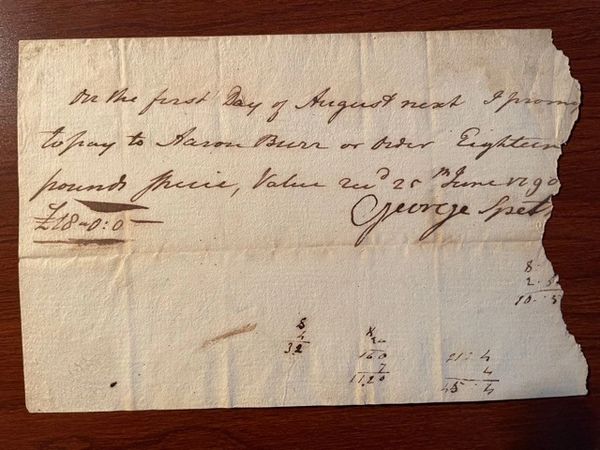 On the first Day of August next I prom
to pay to Aaron Burr or order Eighteen
pounds Specie, Value recd 25th June 1790
George Spe
£18-0:0
8
2
10 5
8
4
32
8
20
160
7
1120
21: 4
4
45 4